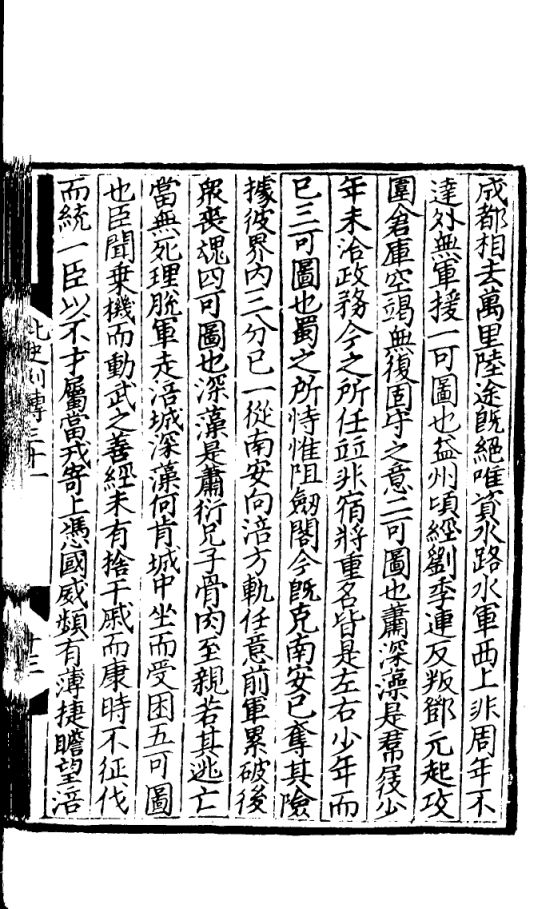 成都相去萬里陸途旣絶唯資水路水軍西上非周年不
達外無軍援一可圖也益州頃經劉季連反叛鄧元起攻
圍倉庫空竭無復固守之意二可圖也蕭深藻是羣屐少
年未洽政務今之所任並非宿將重名皆是左右少年而
已三可圖也蜀之所恃惟阻劔閣今旣克南安已奪其險
據彼界內三分已一從南安向涪方軌任意前軍累破後
衆喪魂四可圖也深藻是蕭衍兄子骨肉至親若其逃亡
當無死理脫軍走涪城深藻何肯城中坐而受困五可圖
也臣聞乗機而動武之善經未有捨干戚而康時不征伐
而統一臣以不才屬當戎寄上馮國威頻有薄捷瞻望涪